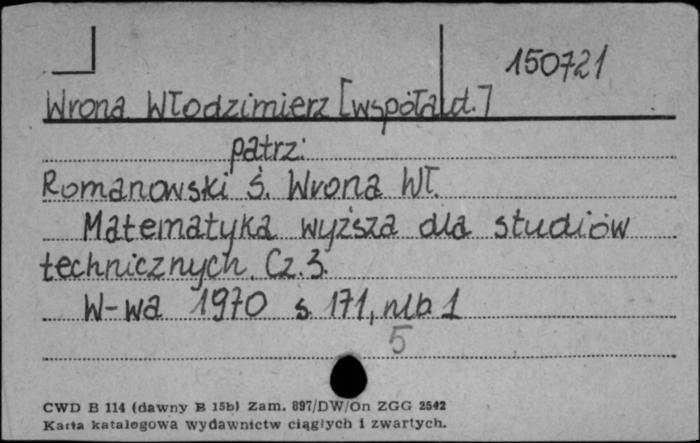 150721
Wrona Włodzimierz [współaut.]
patrz:
Romanowski S. Wrona Wł.
Matematyka wyższa dla studiów
technicznych. Cz. 3.
W-wa 1970 s. 171, nlb. 1
5
CWD B 114 (dawny B 15b) Zam. 897/DW/On ZGG 2542
Karta katalogowa wydawnictw ciągłych i zwartych.